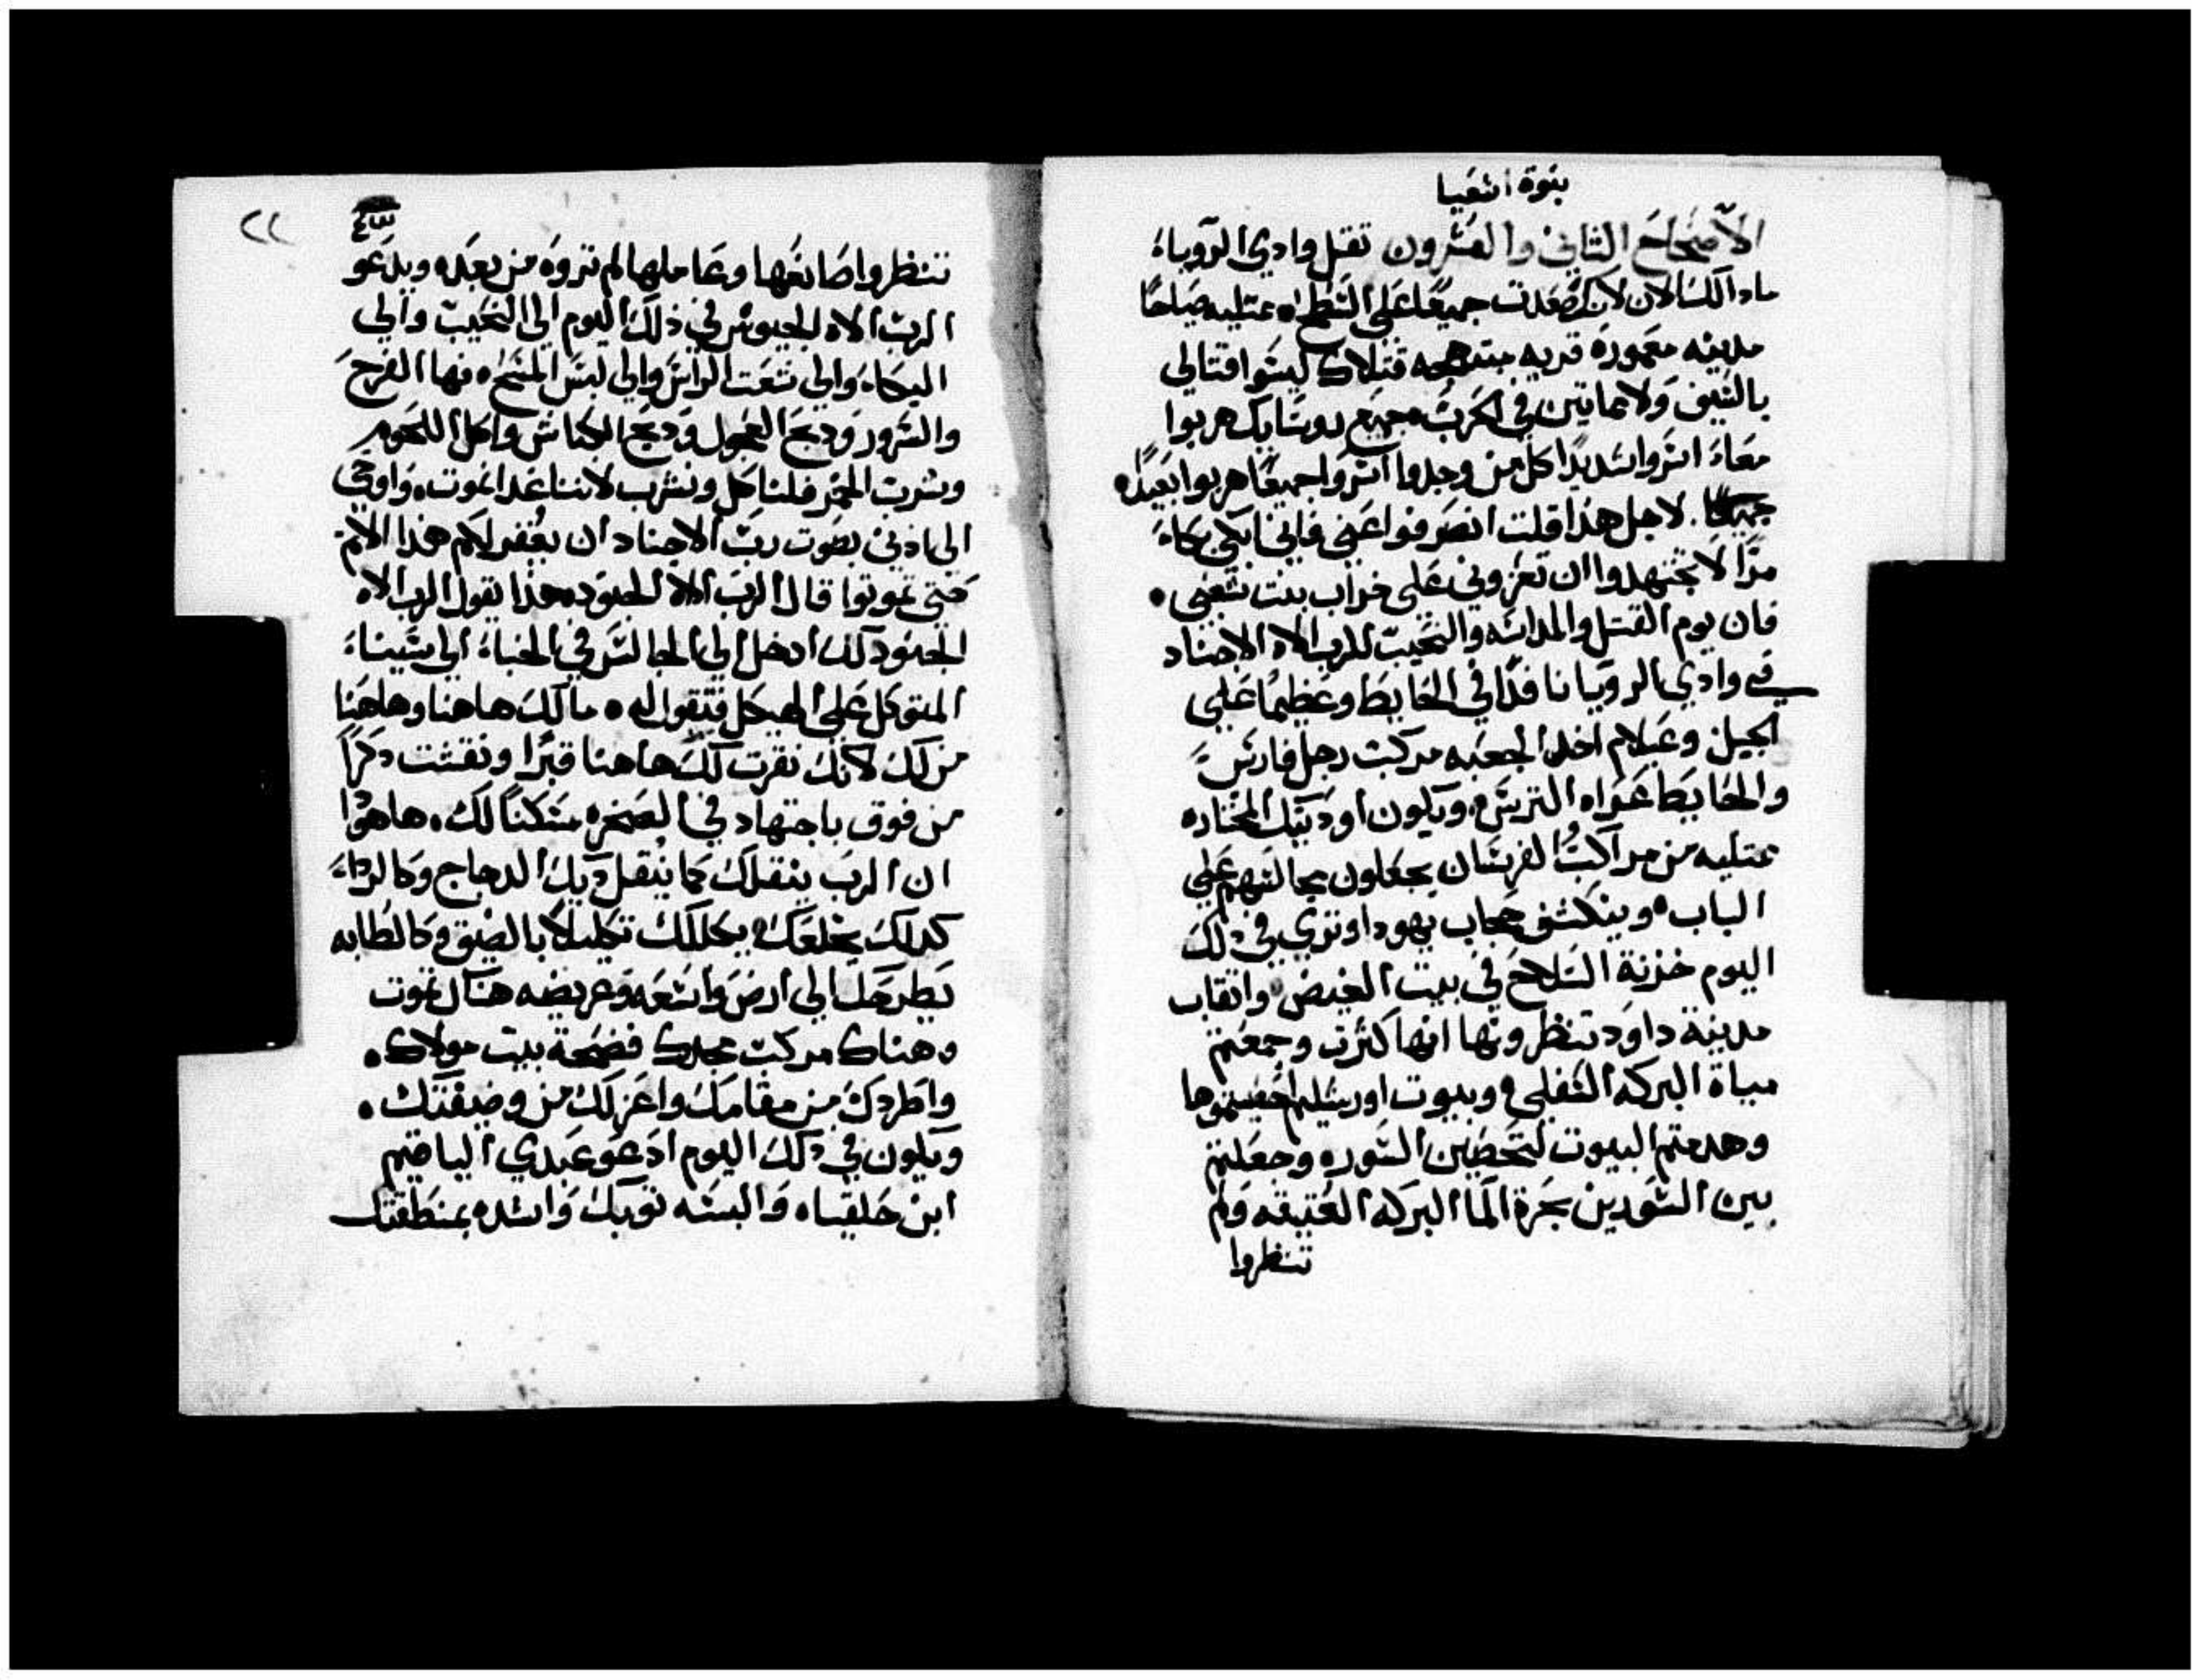 بنوة اشعيا
الاصحاح الثاني والعشرون تقل وادي الروياء
ماد الك الان لانك صعدت جميعا على السطح اه ممتليه صياحا
مدينه معمورة قريه مبتهجه قتلاك ليسوا قتالي
بالسيف ولا مايتين في الحرب جميع روسايك هربوا
معاء اسروا شديدا كل من وجدوا اسروا جميعا هربوا بعيده
جميعا. لاجل هذا قلت انصرفوا عني فاني ابكي بكاء
مرا لا تجتهدوا ان تعزوني على خراب بنت شعبي .
فان يوم القتل والمداسه والنحيب للرب الاه الاجناد
في وادي الرويا نافدا في الحايط وعظيما على
الجبل وعيلام اخد الجعبه مركبت رجل فارس
والحايط عراه الترس ويكون اوديتك المختاره
ممتليه من مراكب الفرسان يجعلون مجالسهم على
الباب ٥ وينكشف حجاب يهودا وتري في دلك
اليوم خزنة السلاح في بيت الغيض وانقاب
مدينة داود تنظرونها انها كثرت وجمعتم
مياة البركه السفلى وبيوت اورشليم احصيتموها
وهدمتم البيوت لتحصين السوره وجعلتم
بين السورين بحرة الما البركه العتيقه ولم
تنظروا
٤٣
٢٢
تنظروا صانعها وعاملها لم تروه من بعده ويدعو
الرب الاه الجيوش في ذلك اليوم الى النحيب والى
البكاء والى نتعت الراس والى لبس المسح ٥ فها الفرح
والسرور ودبح العجول ودبح الكباش واكل اللحوم
وشرب الخمر فلناكل ونشرب لاننا غدا نموت. واوحى
الى اذني بصوت رب الاجناد ان يغفر لكم هذا الاثم
حتى تموتوا قال الرب الاه الجنود. هذا يقول الرب الاه
الجنود لك ادخل الى الجالس في الخباء الى شبناء
المتوكل على الهيكل فتقول له ٥ مالك هاهنا وهاهنا
من لك لانك نقرت لك هاهنا قبرا ونقشت دكرا
من فوق باجتهاد في الصخره مسكنا لك. هاهوا
ان الرب ينقلك كما ينقل ديك الدجاج وكالرداء
كدلك يخلعك يكللك تكليلا بالضيق وكالطابه
يطرحك الى ارض واسعه وعريضه هناك تموت
وهناك مركبت مجدك فضحة بيت مولاك .
واطردك من مقامك واعزلك من وضيفتك .
ويكون في دلك اليوم ادعو عبدي الياقيم
ابن حلقياه والبسه توبك واشده بمنطقتك